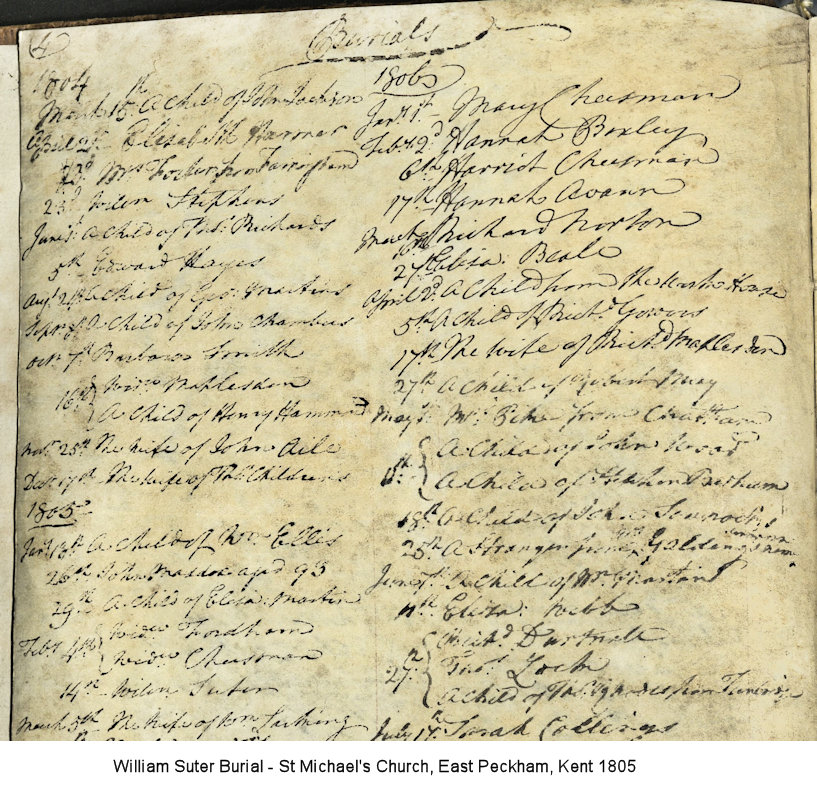 4
Burials
1804
March 18th A Child of John Jackson
April 2d Elizabeth Harmer
23d Mrs Foster from Farningham
23d Willm Stephens
June A Child of Thos Richards
5th Edward Hayes
Augt 24th A Child of Geo: Martins
Septr A Child of John Chambers
Octr 7th Barbara Smith
16th Widw Maplesden
A Child of Henry Hammond
Novr 25th The Wife of John Aile
Decr 17th The Wife of Thos Childrens
1805
Jany 18th A Child of Wm Ellis
26th John aged 93
29th A Child of Eliza: Martin
Feby 4th Widw Fordham
Widw Cheesman
14th Willm Suter
March 5th The Wife of Wm
1806
Jany 1st Mary Cheesman
Feby 2d Hannah Boxley
6th Harriot Cheesman
17th Hannah Avann
March Richard Norton
27th Eliza: Beale
April 2d A Child from the Work House
5th A Child of Richd Gowers
17th The Wife of Richd Maplesden
27th A Child of Robert May
May Mr from Chatham
A Child of John
A Child of Stephen
18th A Child of John
25th A Stranger from Golding
June 7th A Child of Mr Martins
11th Eliza: Webb
27th Richd Dartnall
Thos Lock
A Child of from Tunbridge
July 17th Sarah Collings
William Suter Burial - St Michael's Church, East Peckham, Kent 1805